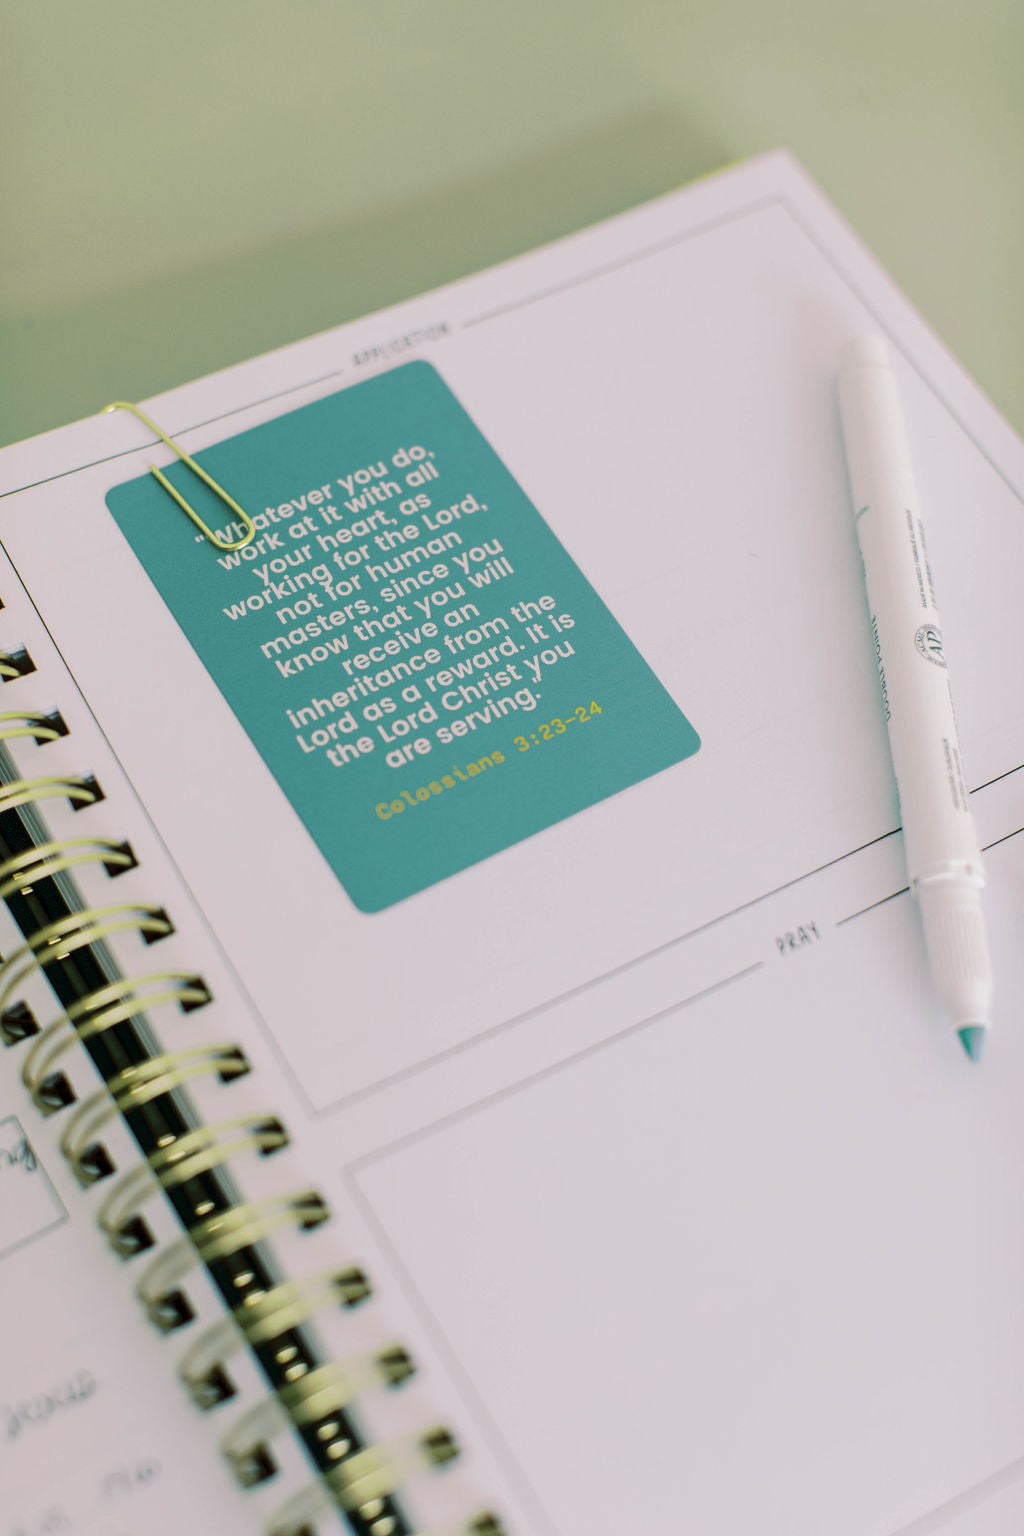 APPLICATION
"Whatever you do,
work at it with all
your heart, as
working for the Lord,
not for human
masters, since you
know that you will
receive an
inheritance from the
Lord as a reward. It is
the Lord Christ you
are serving."
Colossians 3:23-24
PRAY
AP